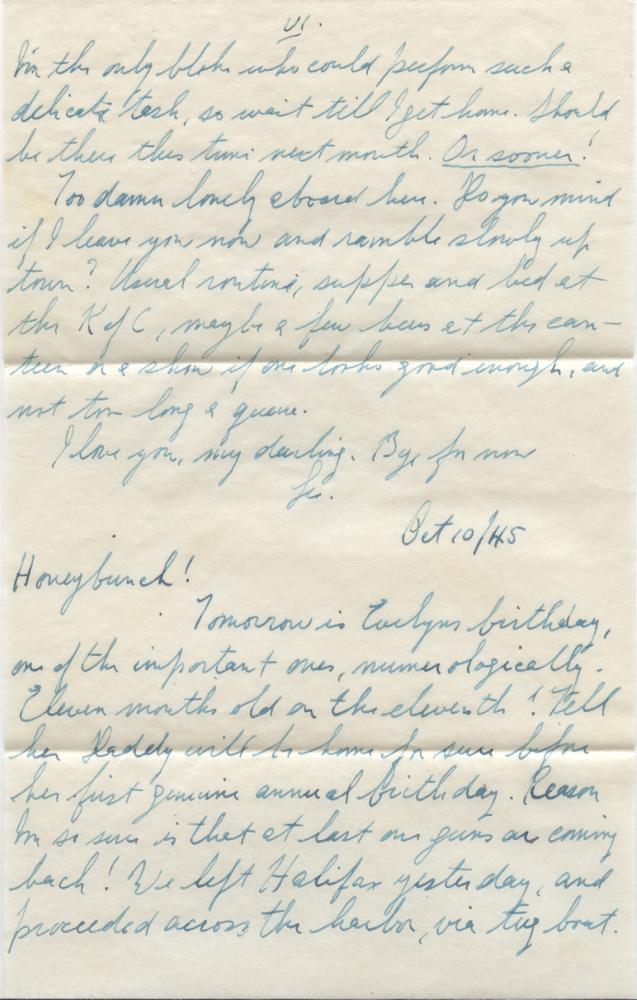 VI.
I'm the only bloke who could perform such a
delicate task, so wait till I get home. Should
be there this time next month. Or sooner!
Too damn lonely aboard here. Do you mind
if I leave you now and ramble slowly up
town? Usual routine, supper and bed at
the K of C, maybe a few beers at the can-
teen or a show if one looks good enough, and
not too long a queue.
I love you, my darling. Bye for now
Les.
Oct 10/45
Honeybunch!
Tomorrow is Evelyns birthday,
one of the important ones, numerologically.
Eleven months old on the eleventh! Tell
her Daddy will be home for sure before
her first genuine annual birthday. Reason
I'm so sure is that at last our guns are coming
back! We left Halifax yesterday, and
proceeded across the harbor, via tug boat.